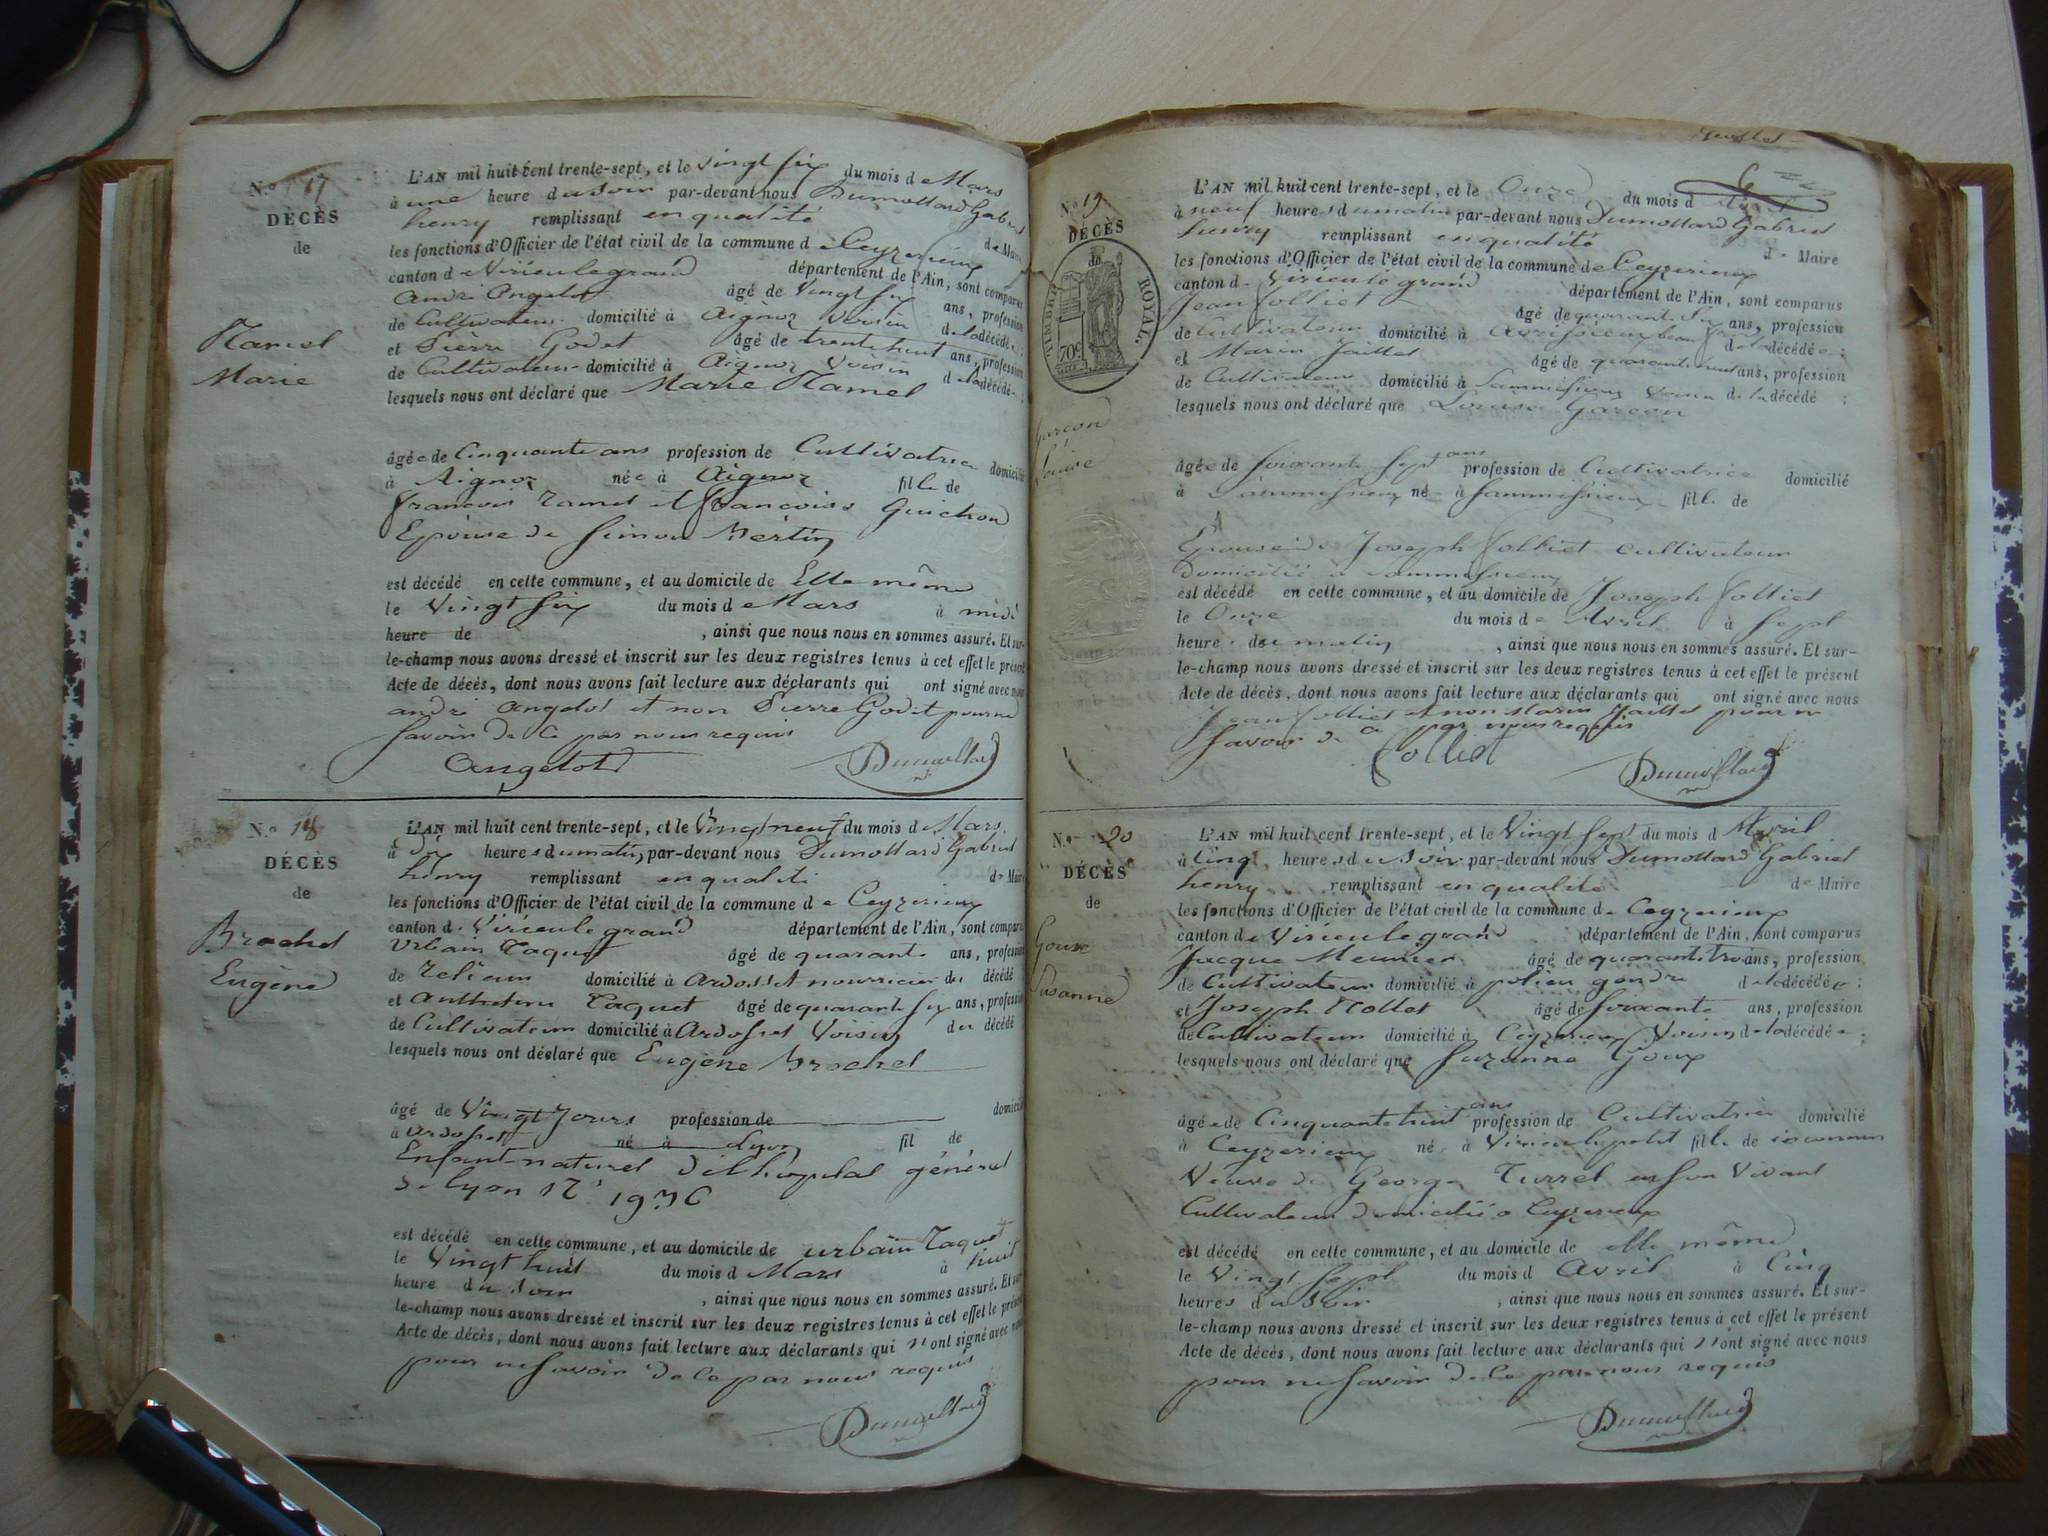 N.o 17
DÉCÈS
de
Ramel
Marie
L'AN mil huit cent trente-sept, et le Vingt six du mois de Mars
à une heure du soir par-devant nous Dumollard Gabriel
henry remplissant en qualité de Maire
les fonctions d'Officier de l'état civil de la commune de Ceyzerieux
canton de Virieu le grand département de l'Ain, sont comparus
andré Angelot âgé de Vingt six ans, profession
de Cultivateur domicilié à Aignoz Voisin de la décédée ;
et Pierre Godet âgé de trente huit ans, profession
de Cultivateur domicilié à Aignoz Voisin de la décédée ;
lesquels nous ont déclaré que Marie Ramel
âgée de Cinquante ans profession de Cultivatrice domicilié
à Aignoz née à Aignoz fille de
francois Ramel et francoise Guichon
Epouse de Simon Bertin
est décédé en cette commune, et au domicile de Elle même
le Vingt six du mois de Mars à midi
heure de , ainsi que nous nous en sommes assuré. Et sur-
le-champ nous avons dressé et inscrit sur les deux registres tenus à cet effet le présent
Acte de décès, dont nous avons fait lecture aux déclarants qui ont signé avec nous
andré angelot et non Pierre Godet pour ne
savoir de ce par nous requis
Angelot Dumollard
N.o 18
DÉCÈS
de
Brochet
Eugène
L'AN mil huit cent trente-sept, et le Vingt neuf du mois de Mars
à heures du matin par-devant nous Dumollard Gabriel
henry remplissant en qualité de Maire
les fonctions d'Officier de l'état civil de la commune de Ceyzerieux
canton de Virieu le grand département de l'Ain, sont comparus
Urbain Taquet âgé de quarante ans, profession
de domicilié à Ardosset nourricier du décédé
et Anthelme Taquet âgé de quarante six ans, profession
de Cultivateur domicilié à Ardosset Voisin du décédé
lesquels nous ont déclaré que Eugène Brochet
âgé de Vingt Jours profession de domicilié
à Ardosset né à Lyon fil de
Enfant naturel de l'hopital général
de Lyon N.° 1936
est décédé en cette commune, et au domicile de urbain Taquet
le Vingt huit du mois d Mars à huit
heure du soir , ainsi que nous nous en sommes assuré. Et sur-
le-champ nous avons dressé et inscrit sur les deux registres tenus à cet effet le présent
Acte de décès, dont nous avons fait lecture aux déclarants qui n'ont signé avec nous
pour ne savoir de ce par nous requis
Dumollard
N.o 19
DÉCÈS
de
TIMBRE ROYAL
70c
Garcon
Louise
L'AN mil huit cent trente-sept, et le Onze du mois d Avril
à neuf heures du matin par-devant nous Dumollard Gabriel
henry remplissant en qualité de Maire
les fonctions d'Officier de l'état civil de la commune de Ceyzerieux
canton de Virieu le grand département de l'Ain, sont comparus
Jean Jolliet âgé de quarante six ans, profession
de Cultivateur domicilié à de la décédée ;
et Marin Jaillet âgé de quarante huit ans, profession
de Cultivateur domicilié à Sammessieux Voisin de la décédé ;
lesquels nous ont déclaré que Louise Garcon
âgée de soixante sept ans profession de Cultivatrice domicilié
à Sammessieux né à Sammessieux fille de
Epouse de Joseph Jolliet cultivateur
Domicilié à Sammessieux
est décédé en cette commune, et au domicile de Joseph Jolliet
le Onze du mois de Avril à sept
heure du matin , ainsi que nous nous en sommes assuré. Et sur-
le-champ nous avons dressé et inscrit sur les deux registres tenus à cet effet le présent
Acte de décès, dont nous avons fait lecture aux déclarants qui ont signé avec nous
Jean Jolliet et non Marin Jaillet pour ne
savoir de ce par nous requis
Jolliet Dumollard
N.o 20
DÉCÈS
de
Goux
Susanne
L'AN mil huit cent trente-sept, et le Vingt sept du mois d Avril
à cinq heures du soir par-devant nous Dumollard Gabriel
henry remplissant en qualité de Maire
les fonctions d'Officier de l'état civil de la commune de Ceyzerieux
canton de Virieu le grand département de l'Ain, sont comparus
Jacque Meunier âgé de quarante trois ans, profession
de Cultivateur domicilié à polieu gendre de la décédée ;
et Joseph Mollet âgé de soixante ans, profession
de Cultivateur domicilié à Ceyzerieux Voisin de la décédée ;
lesquels nous ont déclaré que Suzanne Goux
âgée de Cinquante huit ans profession de Cultivatrice domicilié
à Ceyzerieux né à Virieu le petit fille de inconnus
Veuve de George Turrel en son Vivant
Cultivateur domicilié à Ceyzerieux
est décédé en cette commune, et au domicile de elle même
le Vingt sept du mois d Avril à Cinq
heures du soir , ainsi que nous nous en sommes assuré. Et sur-
le-champ nous avons dressé et inscrit sur les deux registres tenus à cet effet le présent
Acte de décès, dont nous avons fait lecture aux déclarants qui n'ont signé avec nous
pour ne savoir de ce par nous requis
Dumollard